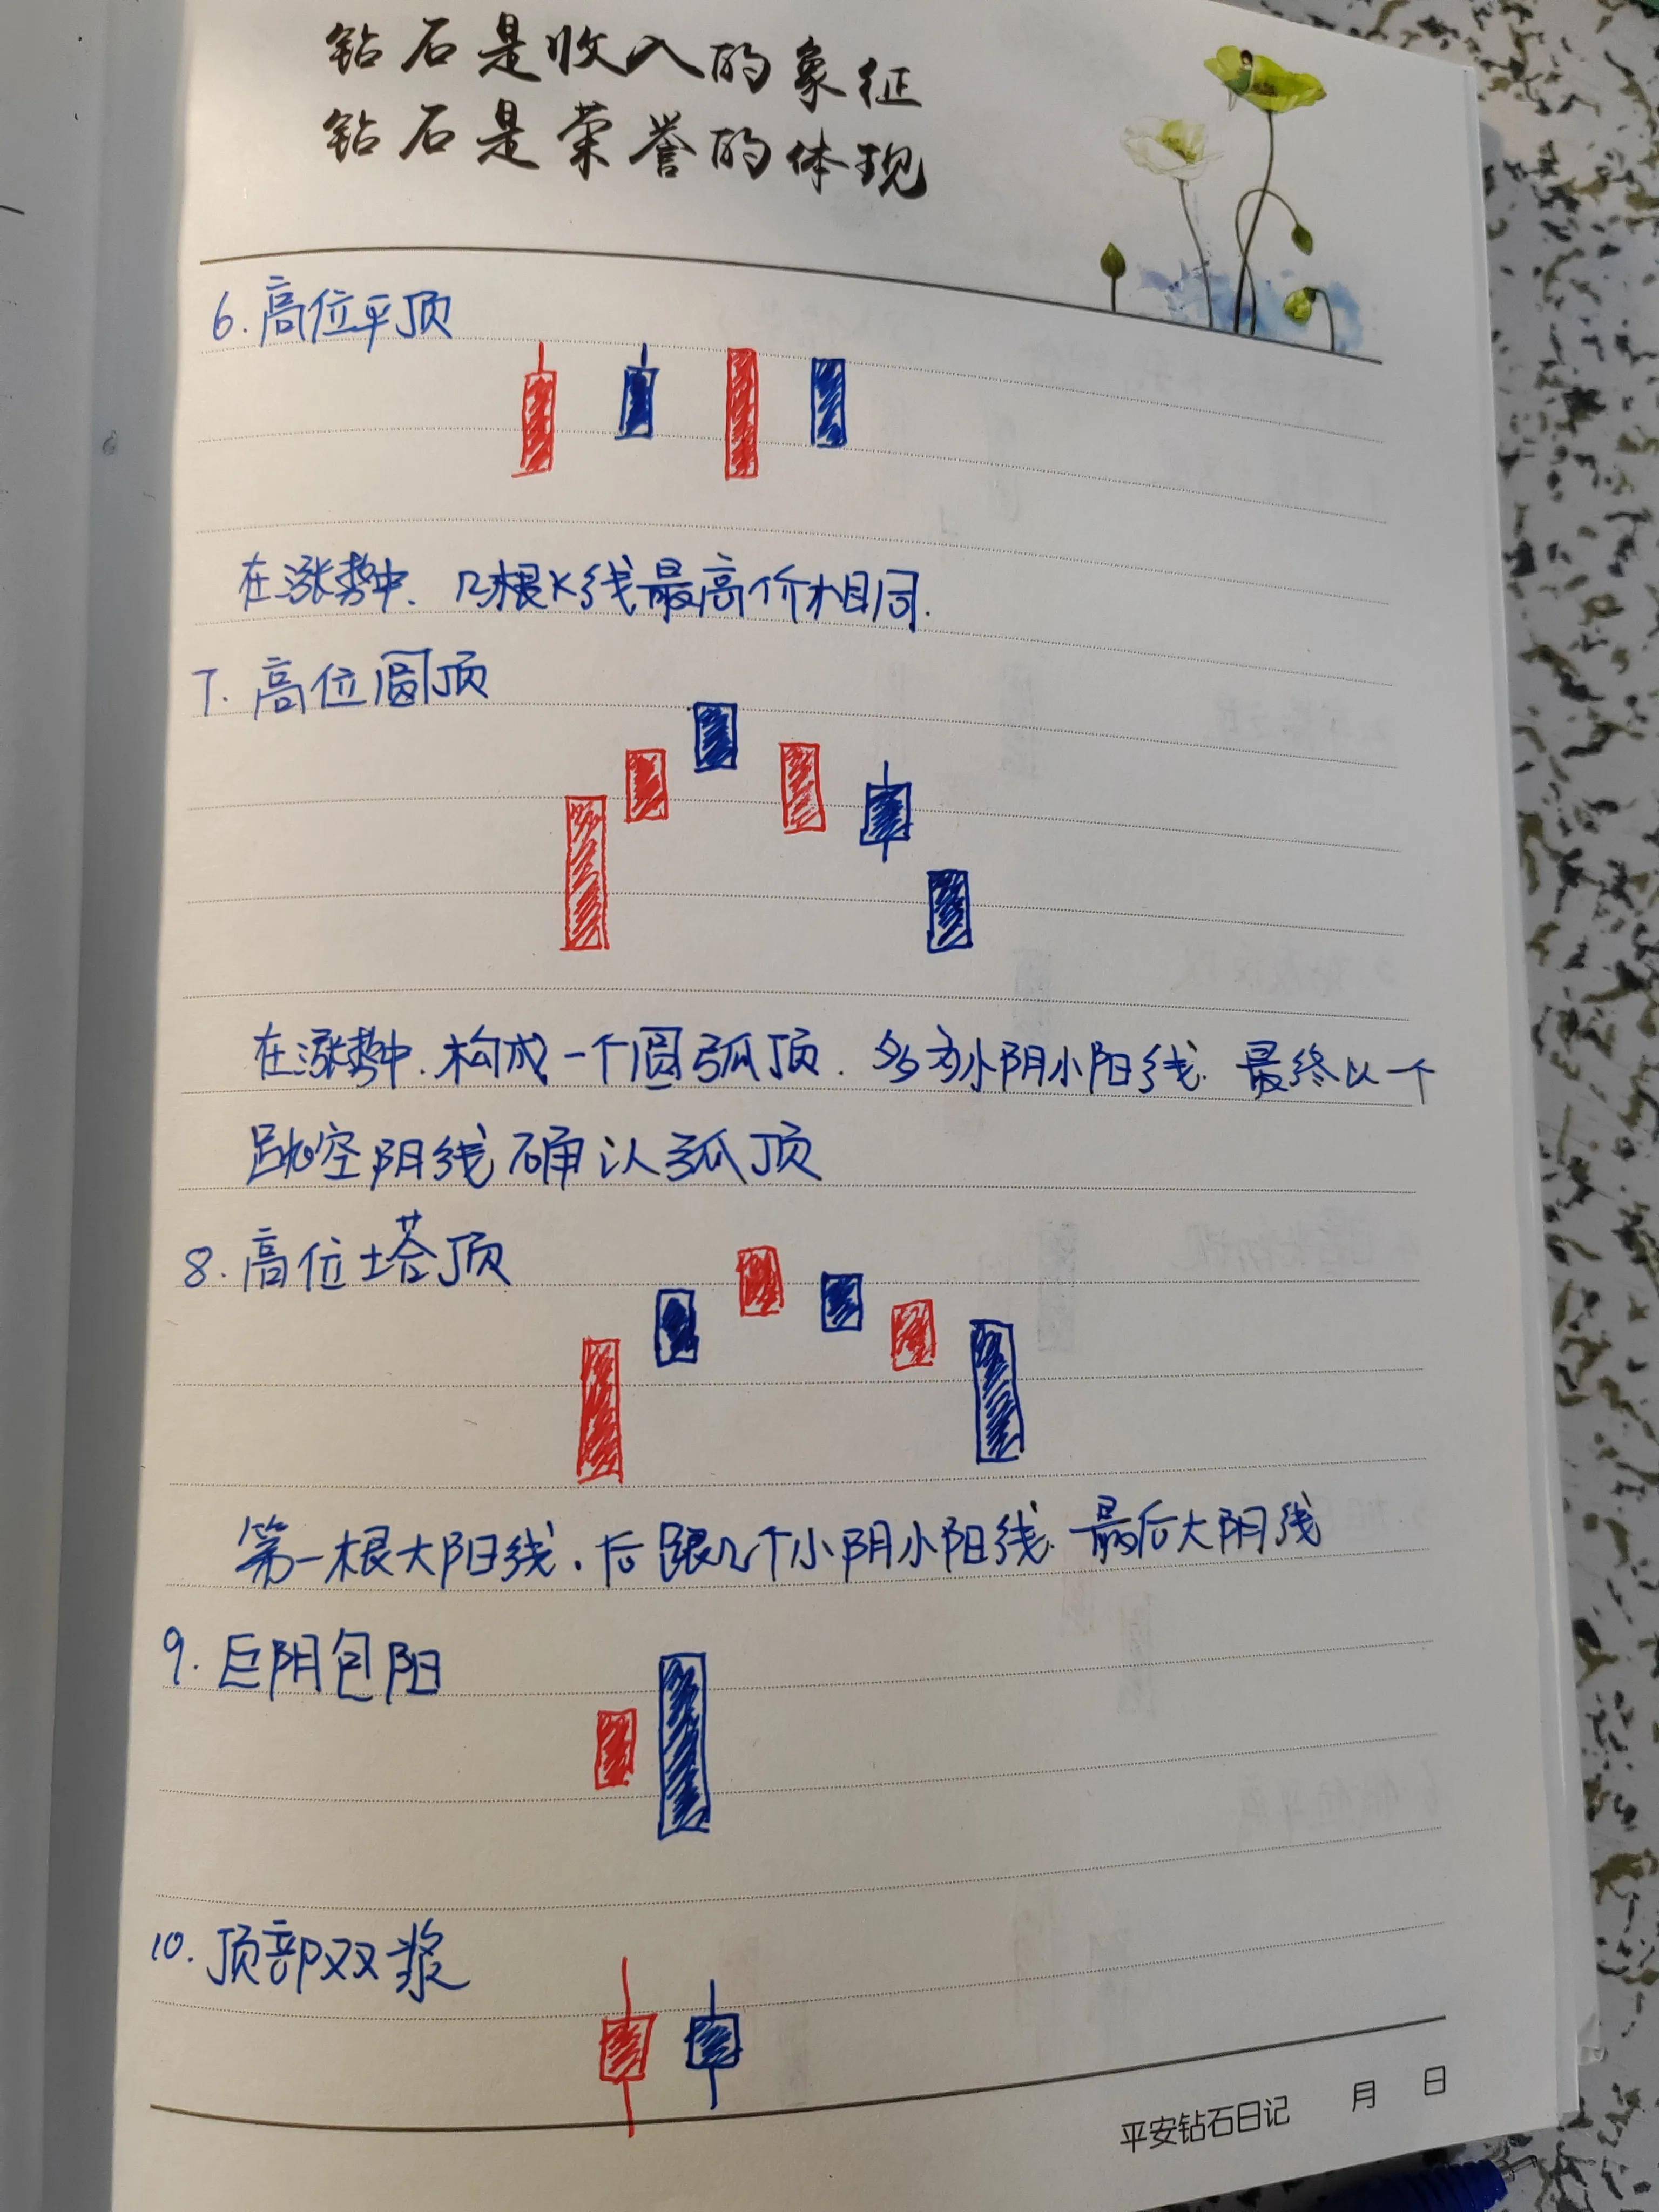 钻石是收入的象征
钻石是荣誉的体现
6. 高位平顶
在涨势中. 几根K线最高价相同.
7. 高位圆顶
在涨势中. 构成一个圆弧顶. 多为小阴小阳线. 最终以一个
跳空阴线确认弧顶
8. 高位塔顶
第一根大阳线. 后跟几个小阴小阳线. 最后大阴线
9. 巨阴包阳
10. 顶部双桨
平安钻石日记 月 日